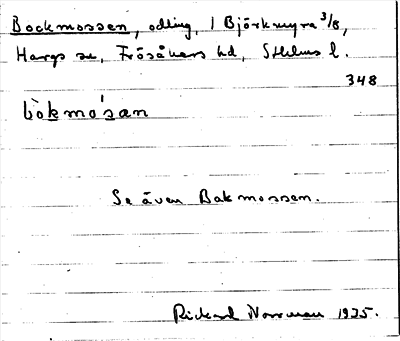 Bockmossen, odling, 1 Björkmyra 3/8,
Hargs sn, Frösåkers hd, Sthlms l.
348
bo`kmo´san
Se även Bakmossen.
Rickard Norrman 1935.